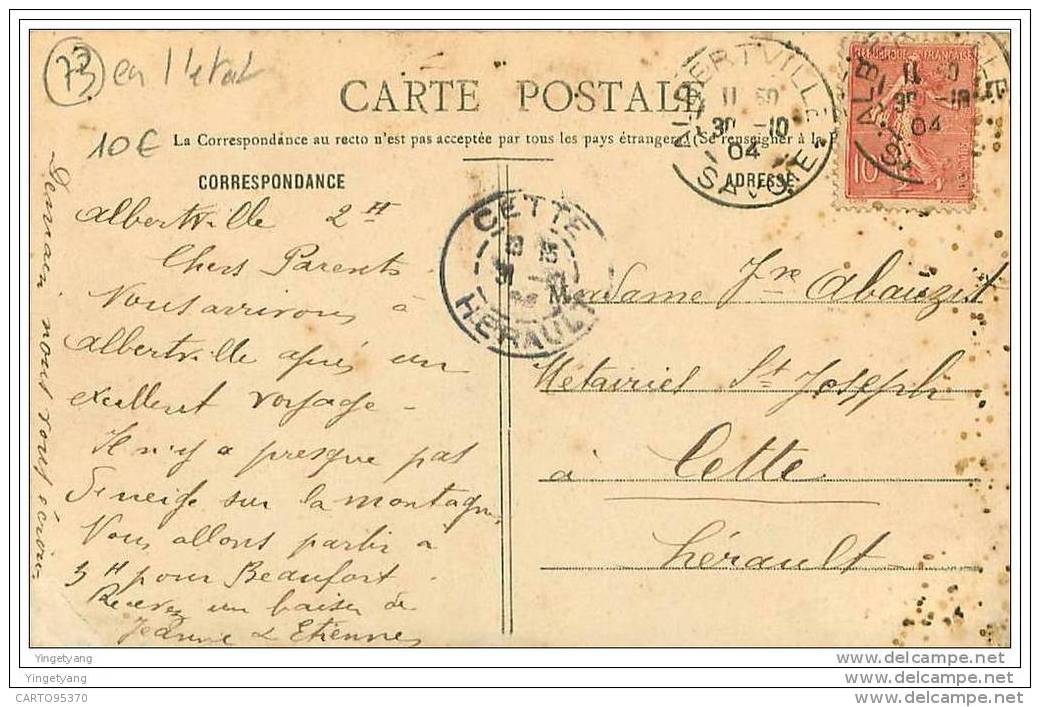 73 en l'état
10€
CARTE POSTALE
La Correspondance au recto n'est pas acceptée par tous les pays étrangers (Se renseigner à la
CORRESPONDANCE
ADRESSE
ALBERTVILLE
11 50
30 -10
04
SAVOIE
REPUBLIQUE FRANÇAISE
10
CETTE
HERAULT
Albertville 2 H
Chers Parents
Nous arrivons à
Albertville après un
excellent voyage -
Il n'y a presque pas
de neige sur la montagne
Nous allons partir à
3 H pour Beaufort.
Recevez un baiser de
Jeanne & Etienne
Demain nous vous
Madame Jre Abauzit
Métairies St Joseph
à Cette
hérault
Yingetyang
Yingetyang
CARTO95370
www.delcampe.net
www.delcampe.net
www.delcampe.net